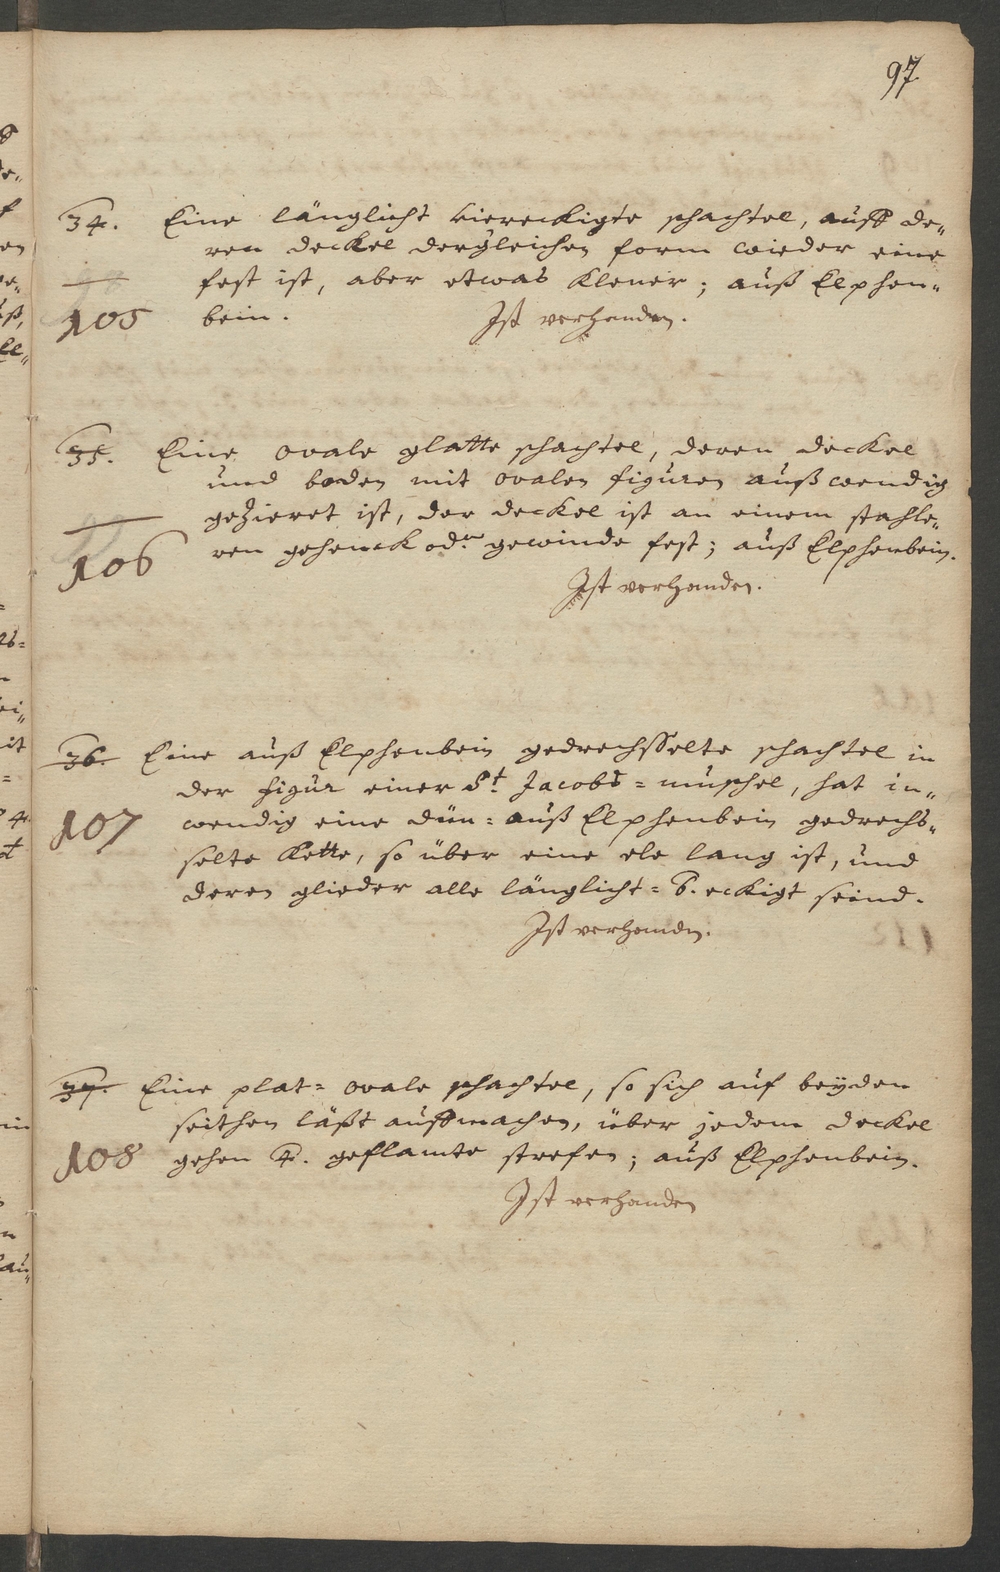 97
34. Eine länglicht viereckigte schachtel, auff de„
ren deckel dergleichen form wieder eine
fest ist, aber etwas klener; auß Elphen„
105 bein. Ist verhanden.
35. Eine ovale glatte schachtel, deren deckel
und boden mit ovalen figuren außwendig
gezieret ist, der deckel ist an einem stahle„
106 ren gehenck od.r gewinde fest; auß Elphenbein.
Ist verhanden.
36. Eine auß Elphenbein gedrechsselte schachtel in
der figur einer St. Jacobs=muschel, hat in„
107 wendig eine dün= auß Elphenbein gedrechs„
selte Kette, so über eine ele lang ist, und
deren glieder alle länglicht= 6. eckigt seind.
Ist verhanden.
37. Eine plat= ovale schachtel, so sich auf beÿden
seithen läßt auffmachen, über jedem deckel
108 gehen 4. geflamte strefen; auß Elphenbein.
Ist verhanden